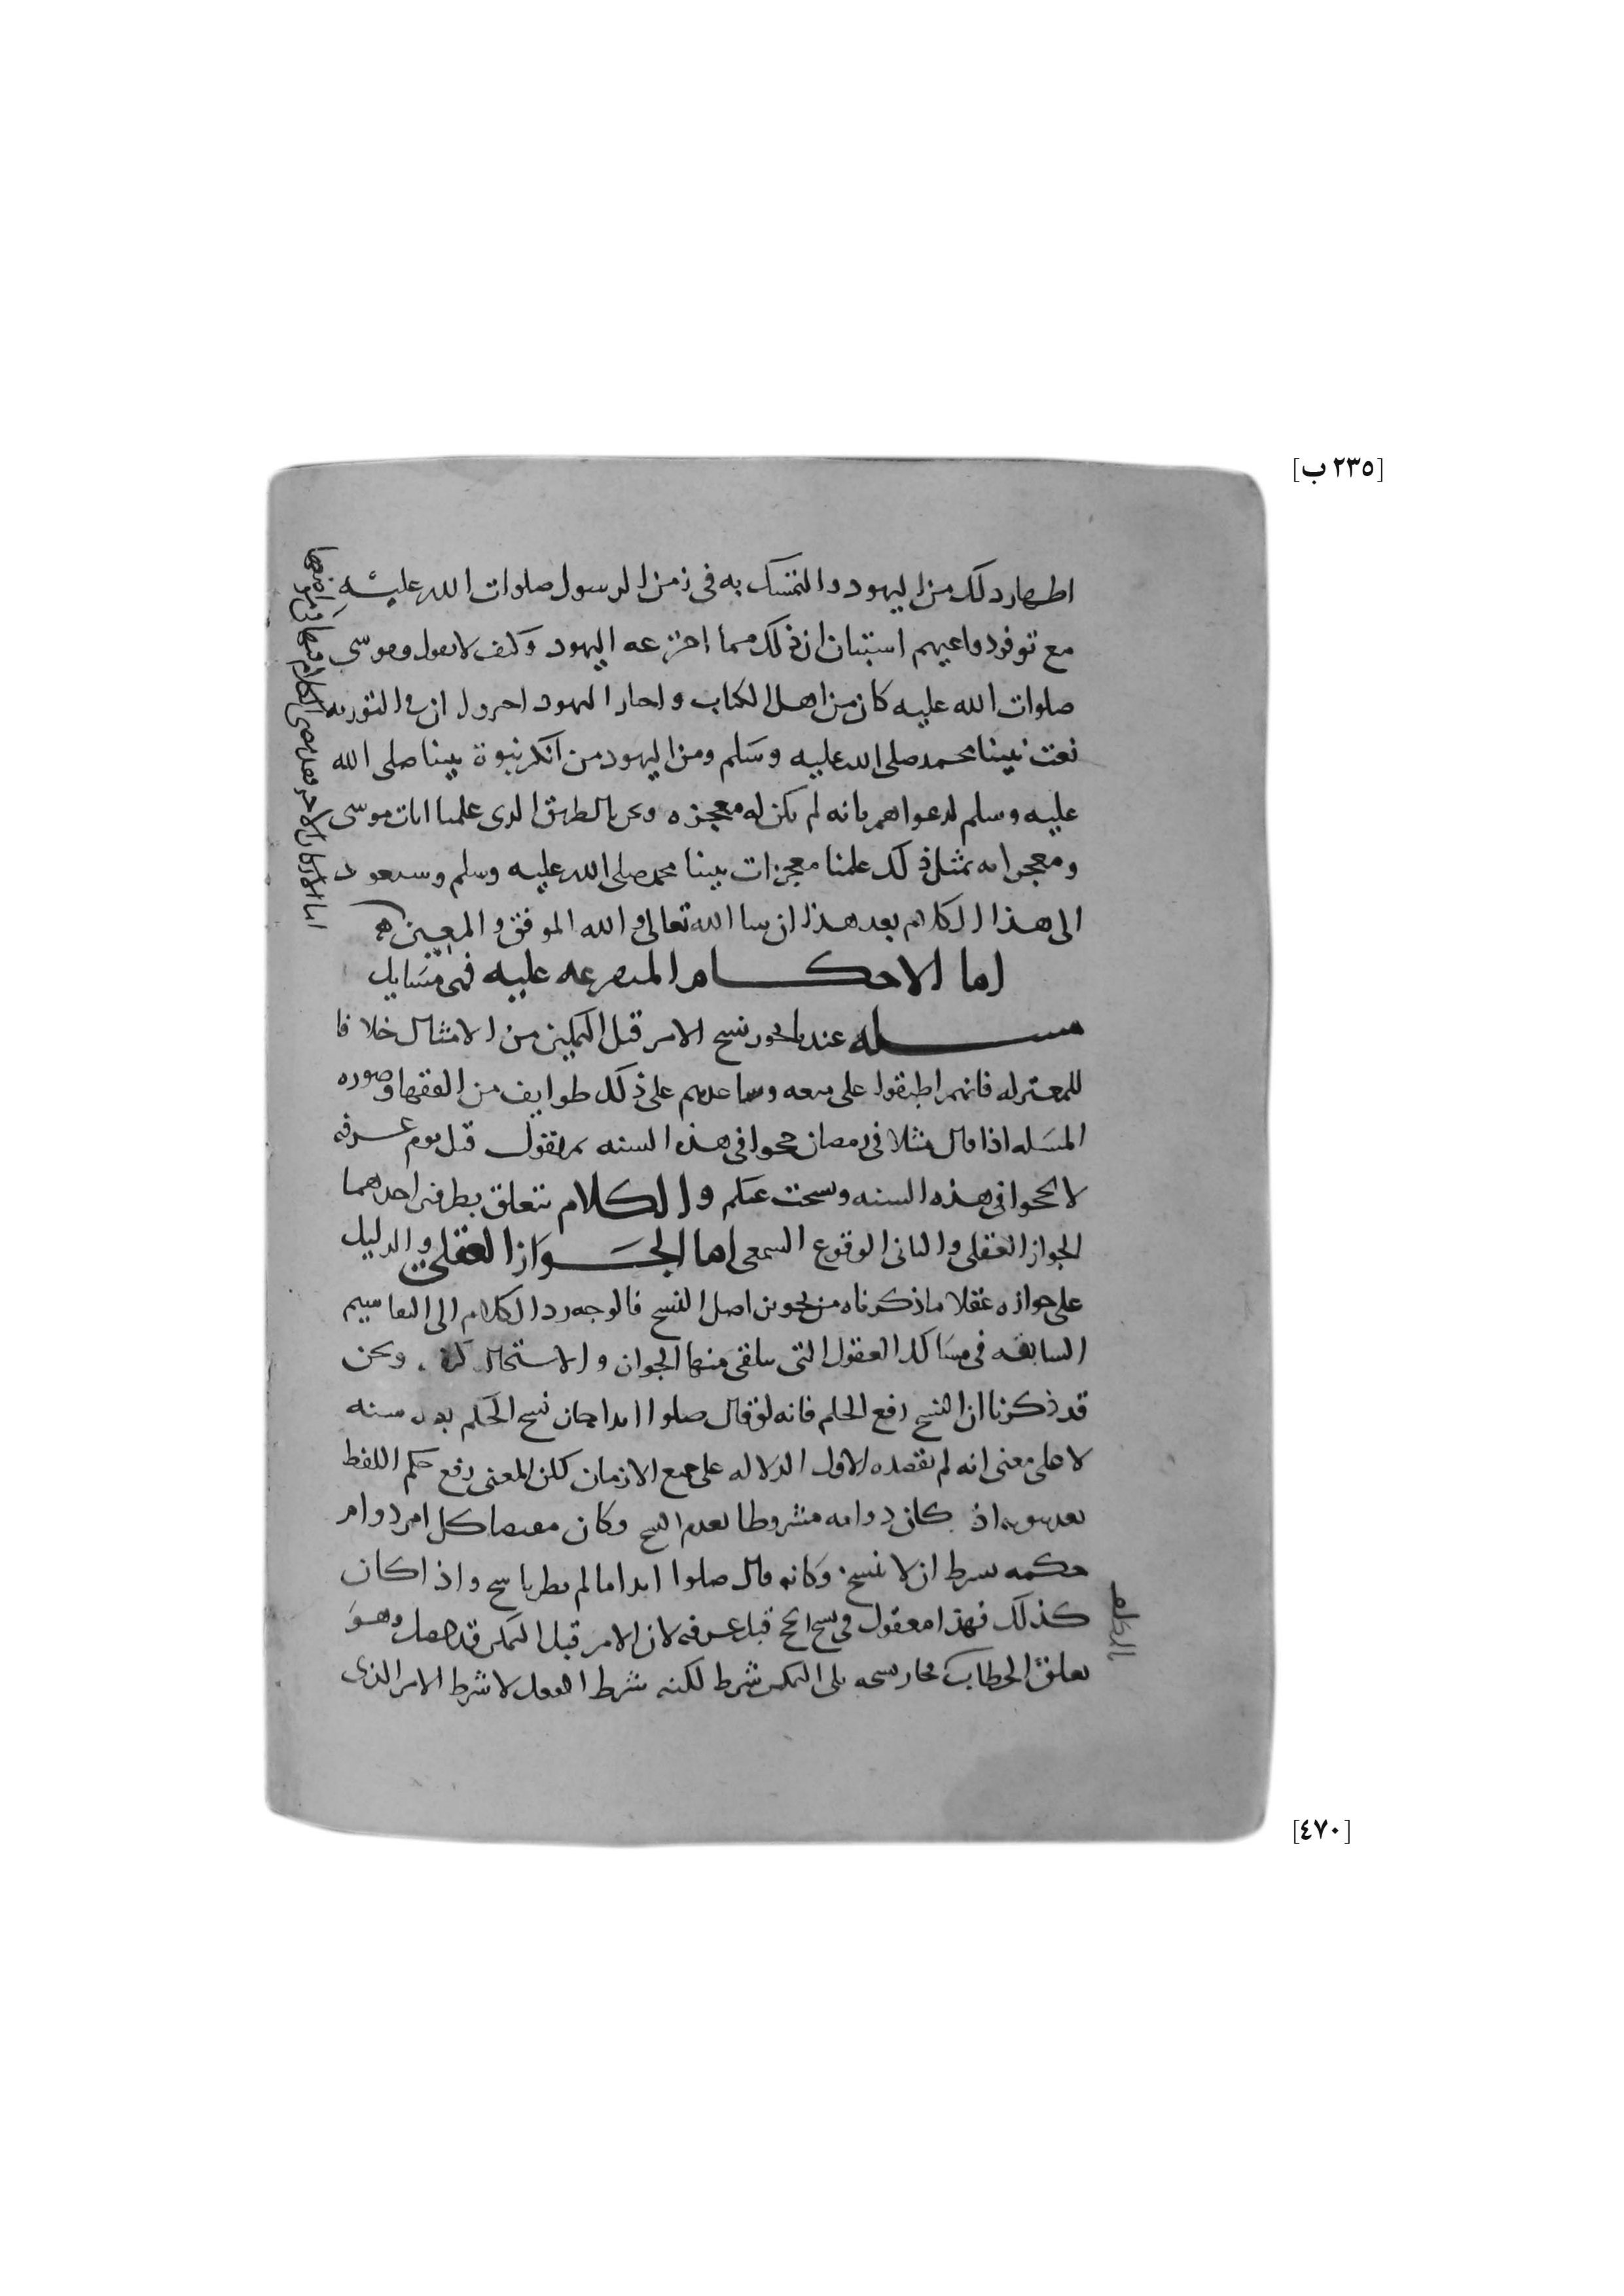 [٢٣٥ ب]
اظهار ذلك من اليهود والتمسك به فى زمن الرسول صلوات الله عليه
مع توفر دواعيهم استبان ان ذلك مما اخترعه اليهود وكيف لا نقول وموسى
صلوات الله عليه كان من اهل الكتاب واحبار اليهود اخبروا ان فى التوريه
نعت نبينا محمد صلى الله عليه وسلم ومن اليهود من انكر نبوة نبينا صلى الله
عليه وسلم لدعواهم بانه لم يكن له معجزه ونحن بالطريق الذى علمنا ايات موسى
ومعجزاته بمثل ذلك علمنا معجزات نبينا محمد صلى الله عليه وسلم وسنعود
الى هذا الكلام بعد هذا ان شا الله تعالى والله الموفق والمعين
اما الاحكام المتفرعه عليه فهى مسايل
مسله عندنا يجوز نسخ الامر قبل التمكين من الامتثال خلافا
للمعتزله فانهم اطبقوا على منعه وساعدهم على ذلك طوايف من الفقها وصوره
المسله اذا قال مثلا فى رمضان حجوا فى هذه السنه ثم يقول قبل يوم عرفه
لا تحجوا فى هذه السنه ونسخت عنكم والكلام يتعلق بطرفين احدهما
الجواز العقلى والثانى الوقوع السمعى اما الجواز العقلى والدليل
على جوازه عقلا ما ذكرناه من تجويز اصل النسخ فالوجه رد الكلام الى التقاسيم
السابقه فى مسالك العقول التى يتلقى منها الجواز والاستحاله ونحن
قد ذكرنا ان النسخ رفع الحكم فانه لو قال صلوا ابدا جاز نسخ الحكم بعد سنه
لا على معنى انه لم يقصد بالاول الدلاله على جميع الازمان لكن المعنى رفع حكم اللفظ
بعد ثبوته اذ كان دوامه مشروطا بعدم النسخ وكان مقتضا كل امر دوام
حكمه بشرط ان لا ينسخ وكانه قال صلوا ابدا ما لم يطر ناسخ واذا كان
كذلك فهذا معقول فى نسخ الحج قبل عرفه لان الامر قبل التمكن قد حصل وهو
تعلق الخطاب فجاز نسخه بلى التمكن شرط لكنه شرط الفعل لا شرط الامر الذى
[٤٧٠]